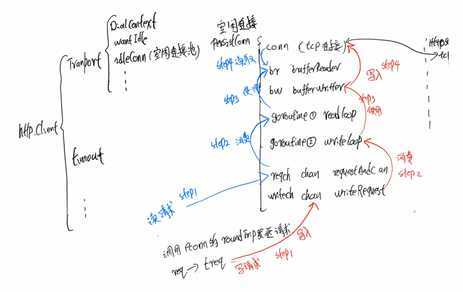 http.Client
Tranport
DialContext
wantIdle
idleConn (空闲连接池)
timout
空闲连接
persistConn
conn (tcp连接)
br bufferReader
bw bufferWritter
goroutine① readloop
goroutine② writeloop
reqch chan requestAndChan
writech chan writeRequest
step2 消费
读请求 step1
step4
写入
step3
使用
消费
step2
调用 pconn的roundTrip发送请求
req → treq
写请求 step1 写入